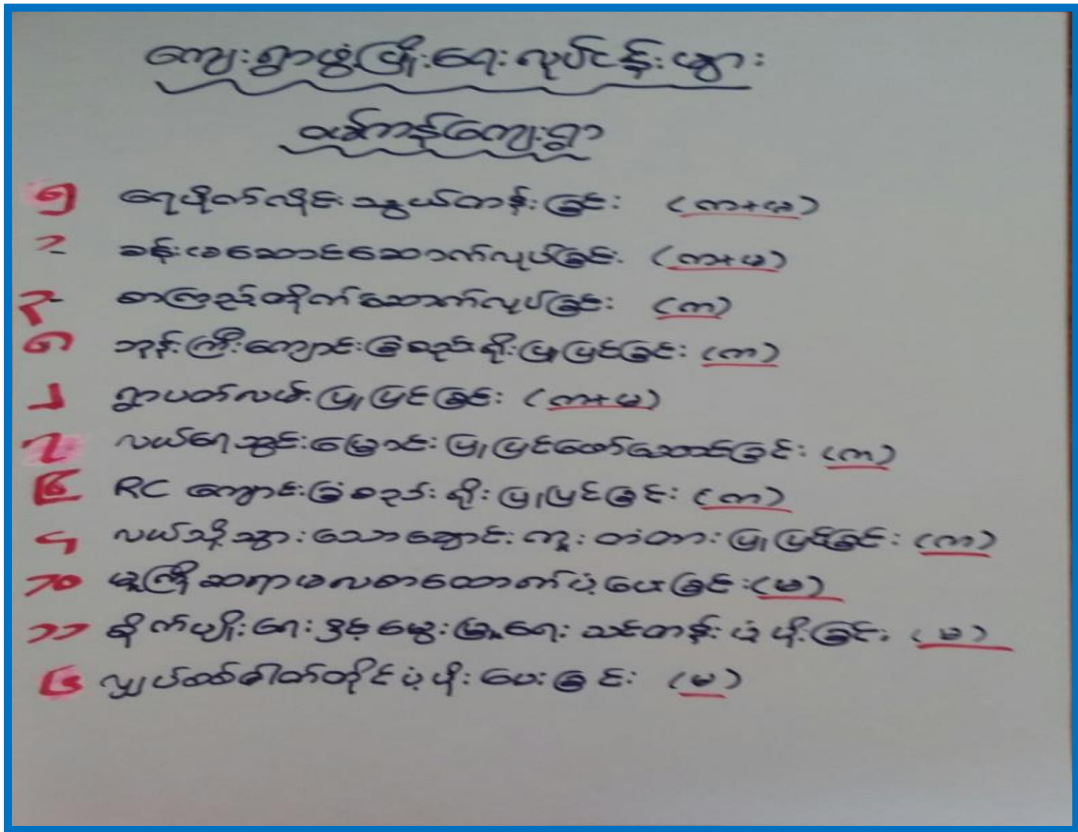 ကျေးရွာဖွံ့ဖြိုးရေးလုပ်ငန်းများ
ကျေးရွာ
၅ ရေပိုက်လိုင်းသွယ်တန်းခြင်း (ကာ+မ)
၁ ခန်းမဆောင်ဆောက်လုပ်ခြင်း (ကာ+မ)
၃- စာကြည့်တိုက်ဆောက်လုပ်ခြင်း (ကာ)
ဘုန်းကြီးကျောင်းခြံစည်းရိုးပြုပြင်ခြင်း (ကာ)
ရွာပတ်လမ်းပြုပြင်ခြင်း (ကာ+မ)
၇ လယ်ရေသွင်းမြောင်းပြုပြင်ဖော်ဆောင်ခြင်း (ကာ)
RC ကျောင်းခြံစည်းရိုးပြုပြင်ခြင်း (ကာ)
လယ်သို့သွားသောချောင်းကူးတံတားပြုပြင်ခြင်း (ကာ)
၁၀ မူကြိုဆရာမလစာထောက်ပံ့ပေးခြင်း (မ)
၁၁ စိုက်ပျိုးရေးနှင့်မွေးမြူရေးသင်တန်းပံ့ပိုးခြင်း (မ)
လျှပ်စစ်ဓါတ်တိုင်ပံ့ပိုးပေးခြင်း (မ)